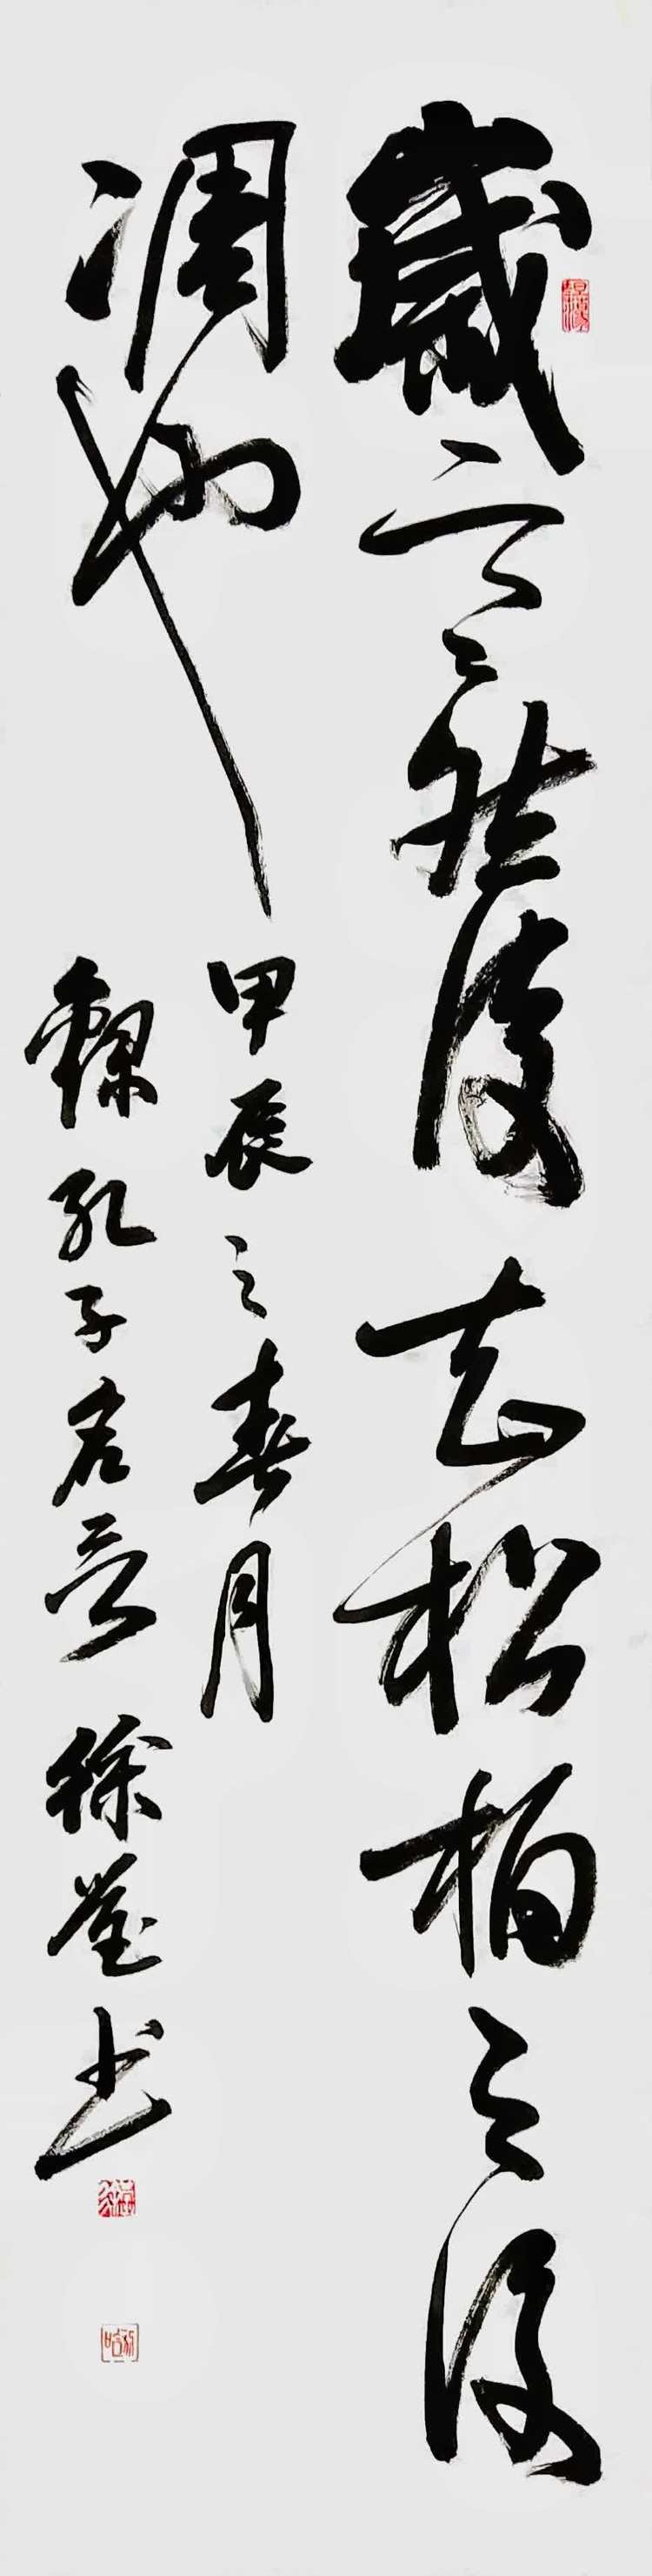 歲寒然後知松柏之後
凋也
甲辰之春月
錄孔子名言 徐书